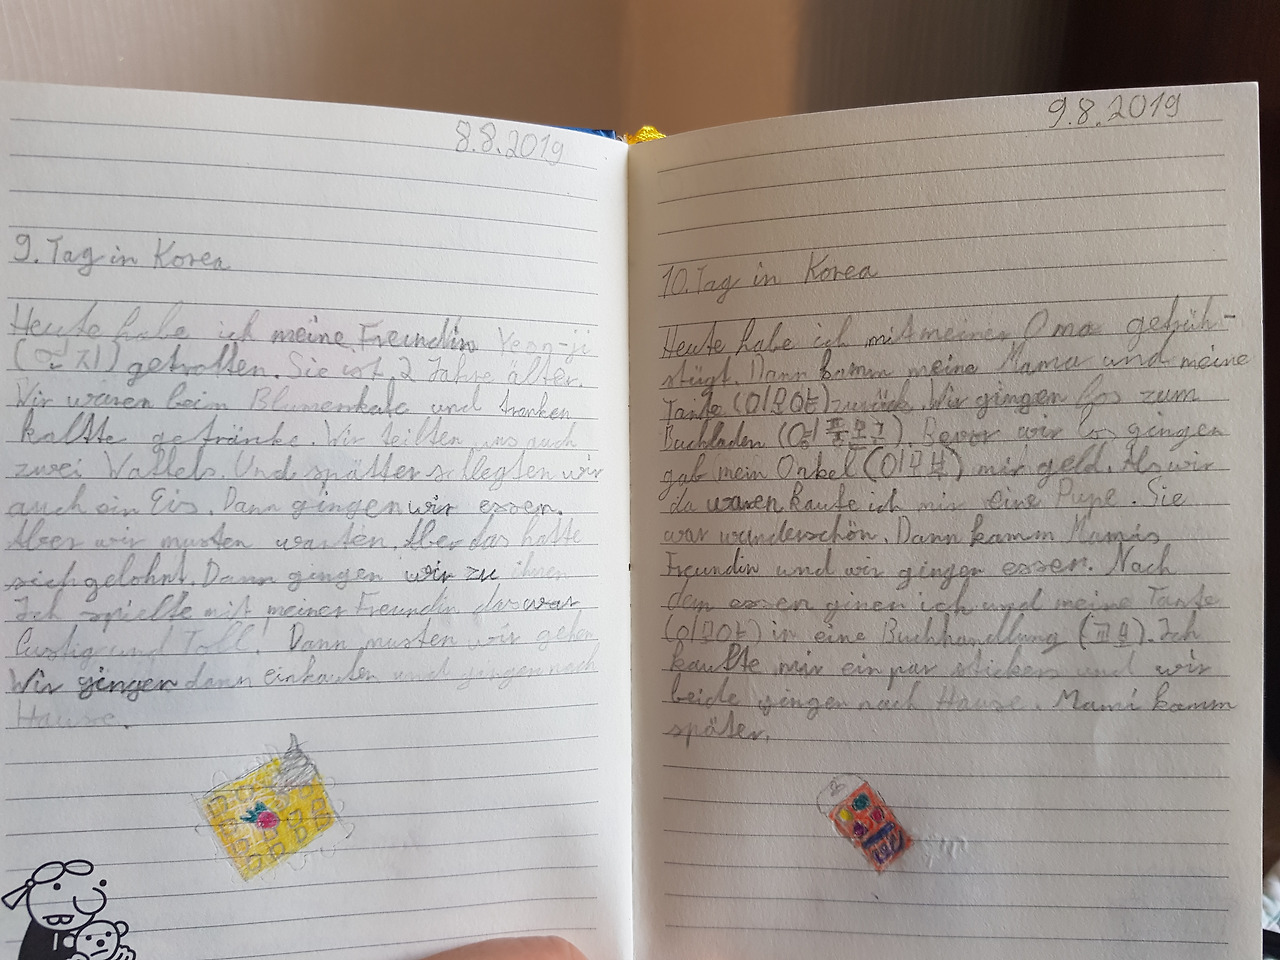 8.8.2019
9. Tag in Korea
Heute habe ich meine Freundin Yeon-ji
(연지) getroffen. Sie ist 2 Jahre älter.
Wir waren beim Blumenkafe und tranken
kaltte getränke. Wir teilten uns auch
zwei Waffels. Und spätter schlegten wir
auch ein Eis. Dann gingen wir essen.
Aber wir musten warten. Aber das hatte
sich gelohnt. Dann gingen wir zu ihnen
Ich spielte mit meiner Freundin das war
Lustig und Toll! Dann musten wir gehen
Wir gingen dann einkaufen und gingen nach
Hause.
9.8.2019
10. Tag in Korea
Heute habe ich mit meiner Oma gefrüh-
stügt. Dann kamm meine Mama und meine
Tante (이모야) zurück. Wir gingen los zum
Buchladen (영풍문고). Bevor wir los gingen
gab mein Onkel (이모부) mir geld. Als wir
da waren kaufte ich mir eine Pupe. Sie
war wunderschön. Dann kamm Mamis
Freundin und wir gingen essen. Nach
dem essen ginen ich und meine Tante
(이모야) in eine Buchhandlung (교보). Ich
kaufte mir ein par stickers und wir
beide gingen nach Hause. Mami kamm
später.